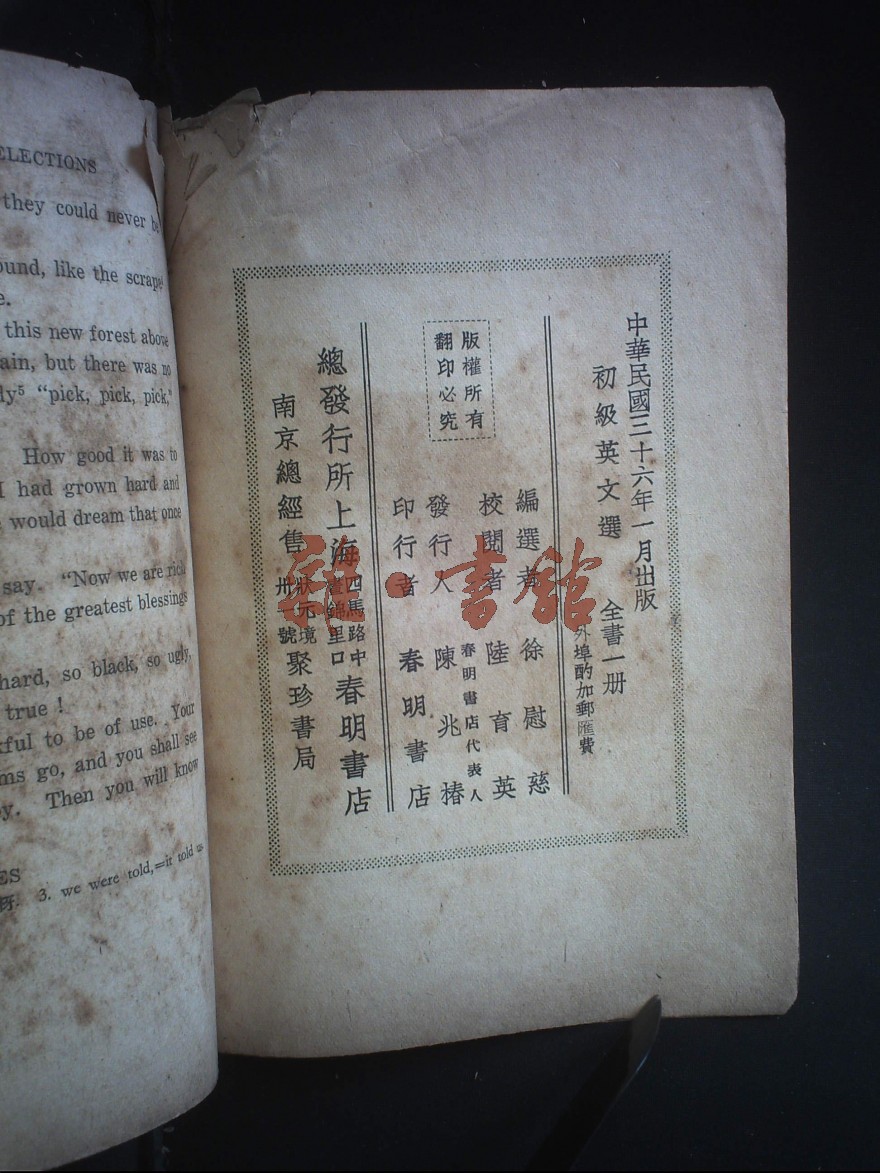 ELECTIONS
they could never be
ound, like the scrape
e.
this new forest above
ain, but there was no
dly⁵ “pick, pick, pick,”
How good it was to
I had grown hard and
would dream that once
say. “Now we are rich
of the greatest blessings
hard, so black, so ugly,
true !
kful to be of use. Your
ms go, and you shall see
y. Then you will know
ES
3. we were told,=it told
中華民國三十六年一月出版
初級英文選 全書一册
外埠酌加郵匯費
編選者 徐慰慈
校閱者 陸育英
發行人 春明書店代表人 陳兆椿
印行者 春明書店
版權所有
翻印必究
總發行所上海四馬路中畫錦里口春明書店
南京總經售狀元境卅一號聚珍書局
雜·書館